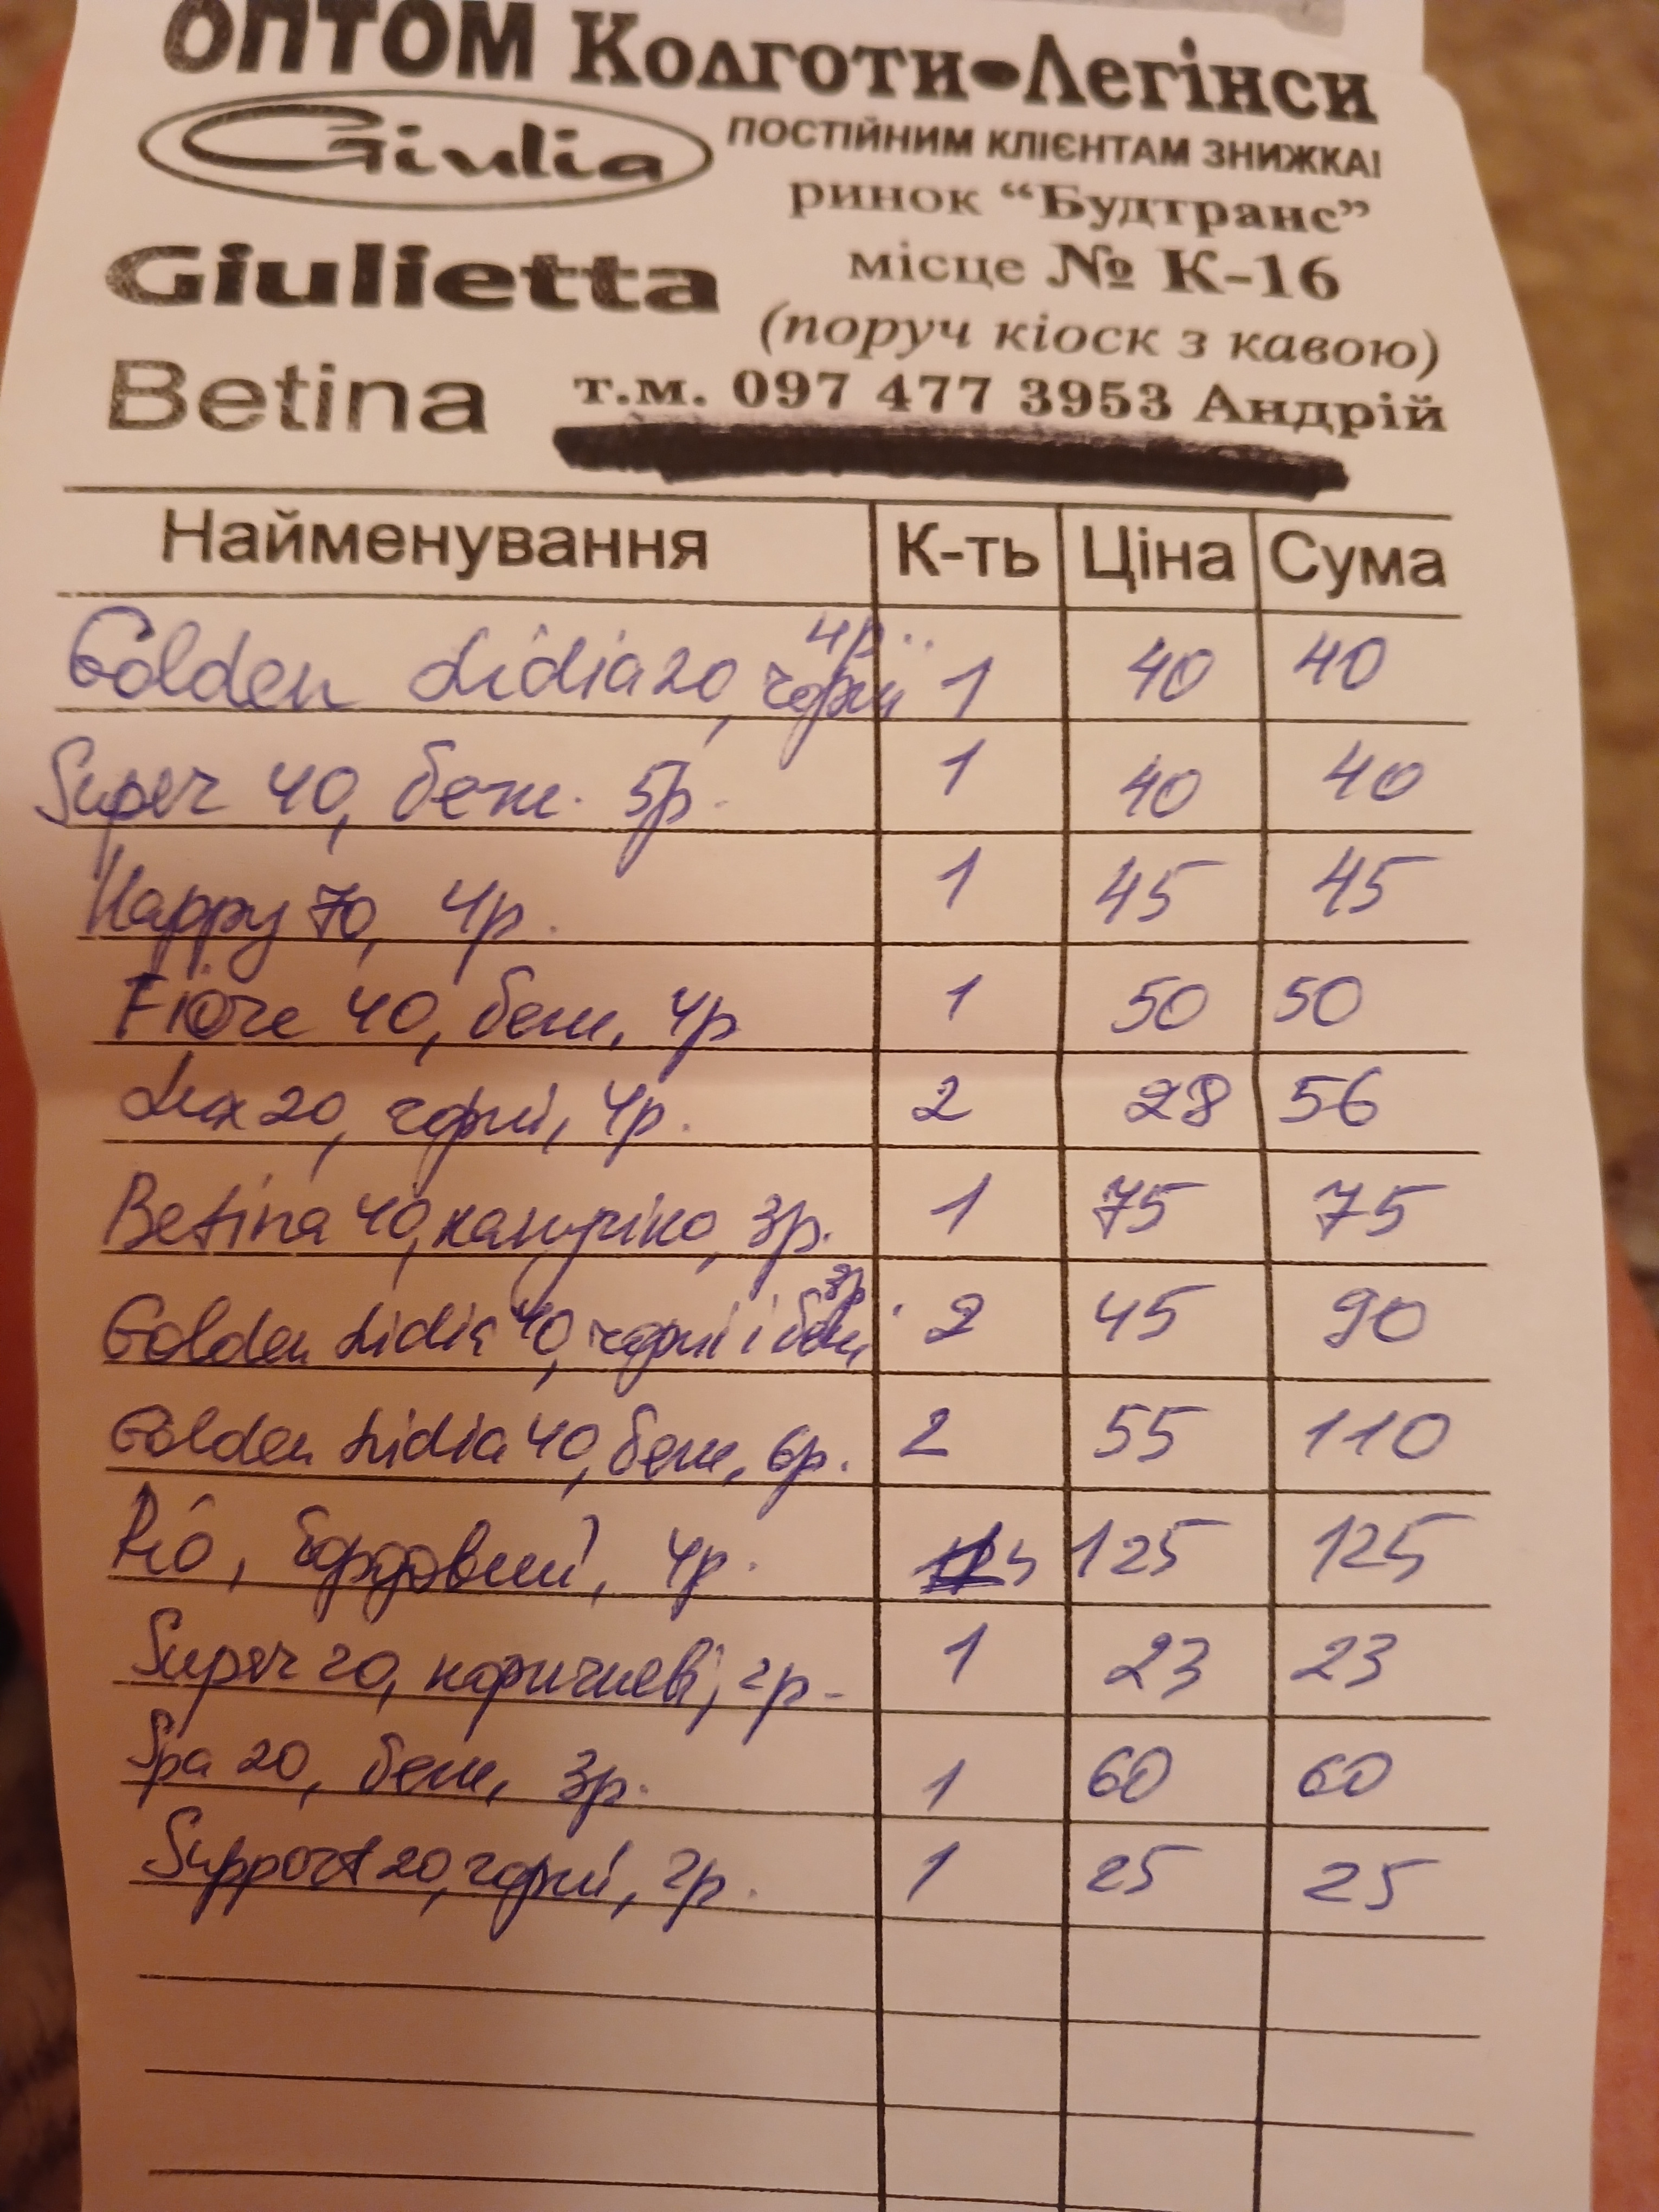 ОПТОМ Колготи•Легінси
Giulia ПОСТІЙНИМ КЛІЄНТАМ ЗНИЖКА!
ринок “Будтранс”
Giulietta місце № К-16
(поруч кіоск з кавою)
Betina т.м. 097 477 3953 Андрій
Найменування К-ть Ціна Сума
Golden Lidia 20, чорні 4р. 1 40 40
Super 40, беж. 5р. 1 40 40
Happy 70, 4р. 1 45 45
Fiore 40, беж, 4р 1 50 50
Lux 20, чорні, 4р. 2 28 56
Betina 40, капучіно, 3р. 1 75 75
Golden Lidia 40, чорні і беж, 3р. 2 45 90
Golden Lidia 40, беж, 6р. 2 55 110
Rio, бордовий, 4р. 125 125
Super 20, коричневі, 2р. 1 23 23
Spa 20, беж, 3р. 1 60 60
Support 20, чорні, 2р. 1 25 25